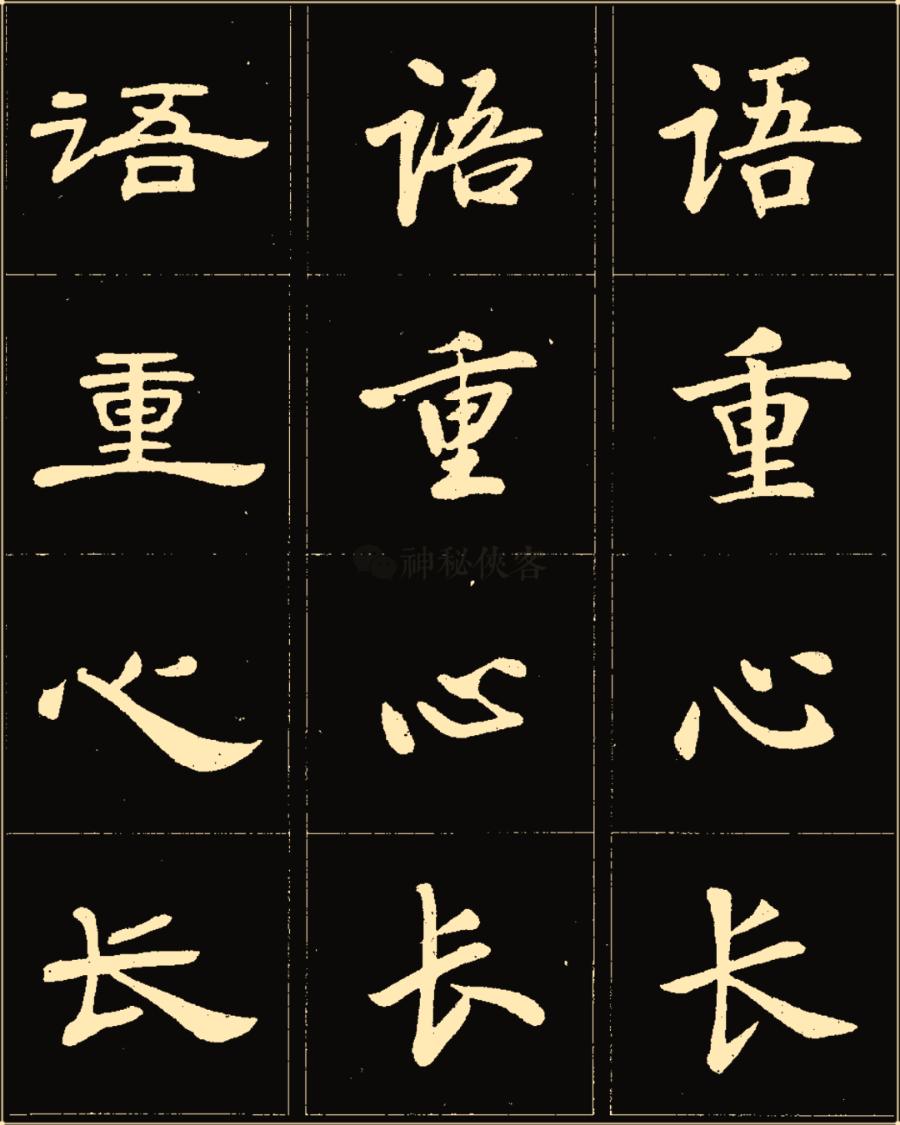 语 语 语
重 重 重
神秘侠客
心 心 心
长 长 长